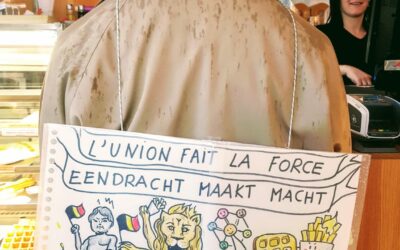 L'UNION FAIT LA FORCE
EENDRACHT MAAKT MACHT